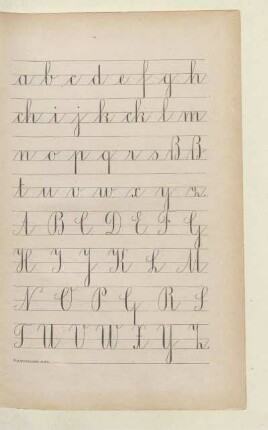 a b c d e f g h
ch i j k ck l m
n o p q r s ß ß
t u v w x y z
A B C D E F G
H I J K L M
N O P Q R S
T U V W X Y Z